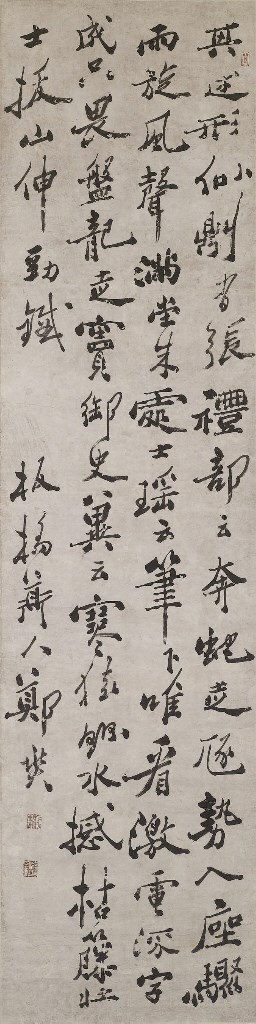 其述形似則有張禮部云奔蛇走虺勢入座驟
雨旋風聲滿堂朱處士瑤云筆下唯看激電流字
成只畏盤龍走竇御史冀云寒猿飲水撼枯藤壯
士拔山伸勁鐵
板橋鄭人鄭燮